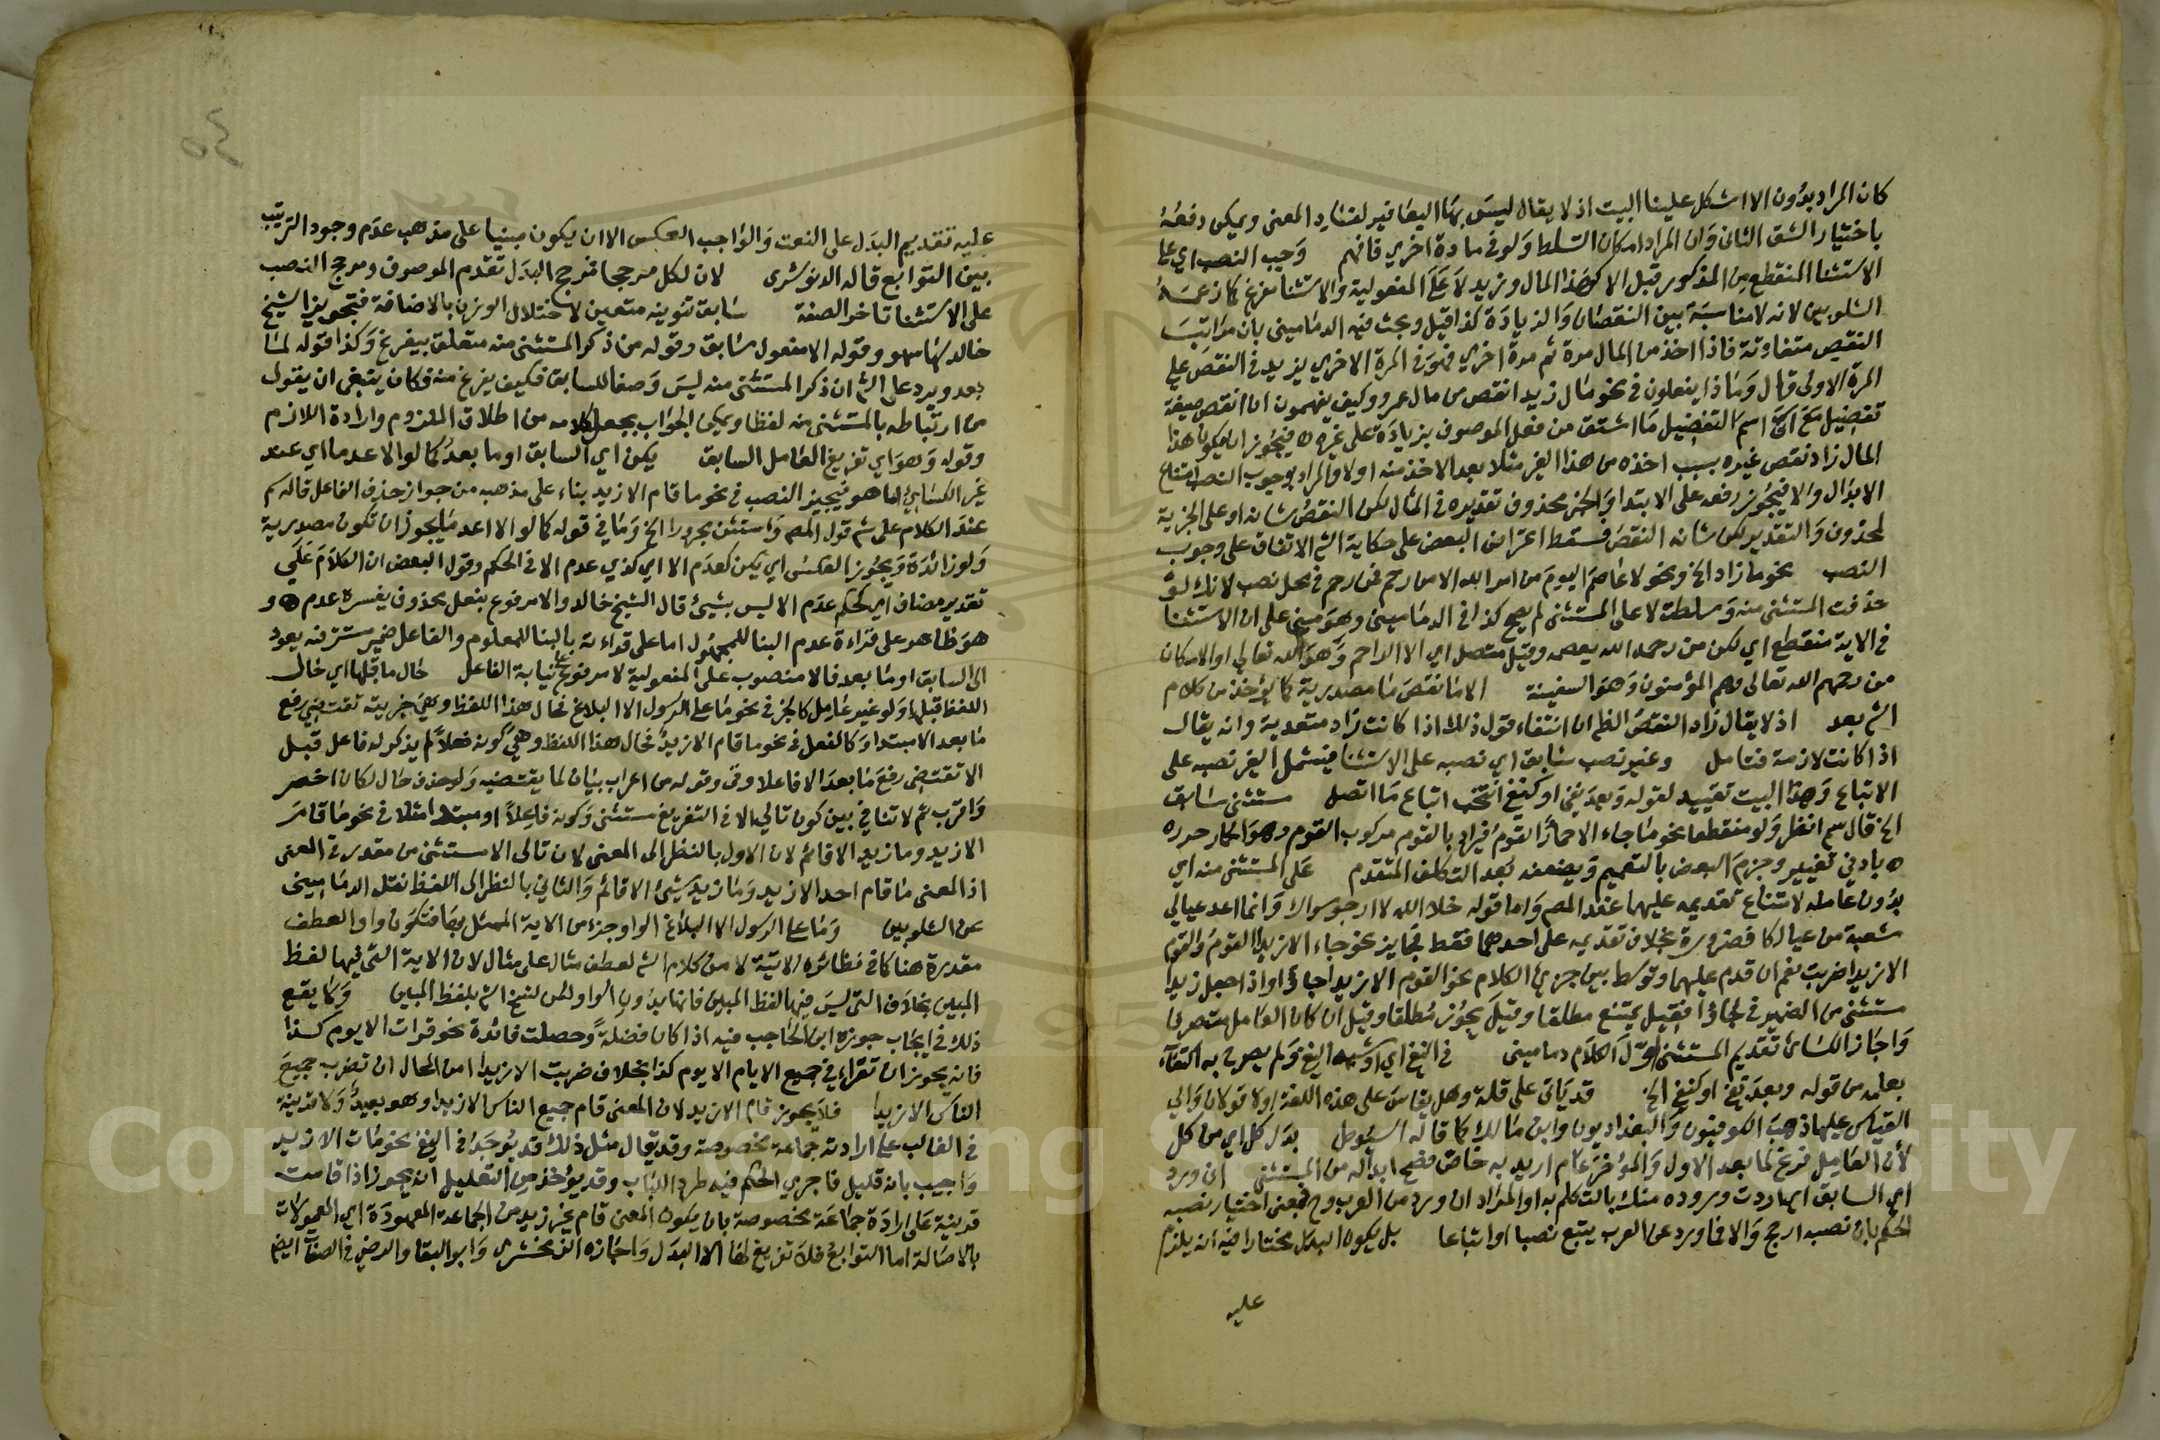 كان المراد بدون الا اشكل علينا البيت اذ لا يقال ليس بها اليعافير لفساد المعنى ويمكن دفعه
باختيار الشق الثاني وان المراد امكان التسلط ولو في مادة اخرى فافهم وجب النصب اي على
الاستثنا المنقطع من المذكور قبل الا كهذا المال وزيد لا على المفعولية والاستثنا مفرغ كما زعمه
الشلوبين لانه لا مناسبة بين النقصان والزيادة كذا قيل وبحث فيه الدماميني بان مراتب
النقص متفاوتة فاذا اخذ من المال مرة ثم مرة اخرى فهو في المرة الاخرى يزيد في النقص على
المرة الاولى قال وماذا يفعلون في نحو مال زيد انقص من مال عمرو وكيف يفهمون ان انقص صيغة
تفضيل مع ان اسم التفضيل ما اشتق من فعل لموصوف بزيادة على غيره فيجوز ان يكون هذا
المال زاد نقص غيره بسبب اخذه من هذا الغير مثلا بعد الاخذ منه اولا والمراد بوجوب النصب امتناع
الابدال والا فيجوز رفعه على الابتدا والخبر محذوف تقديره في المثال لكن النقص شانه او على الخبرية
لمحذوف والتقدير لكن شانه النقص فسقط اعتراض البعض على حكاية الشم الاتفاق على وجوب
النصب نحو ما زاد الخ ونحو لا عاصم اليوم من امر الله الا من رحم فمن رحم في محل نصب لانك لو
حذفت المستثنى منه وسلطت لا على المستثنى لم يصح كذا في الدماميني وهو مبني على ان الاستثنا
في الاية منقطع اي لكن من رحمه الله يعصم وقيل متصل اي الا الراحم وهو الله تعالى او الا مكان
من رحمهم الله تعالى وهم المؤمنون وهو السفينة الا ما نقص ما مصدرية كما يؤخذ من كلام
الشم بعد اذ لا يقال زاد النقص الظ ان انتفاء قول ذلك اذا كانت زاد متعدية وانه يقال
اذا كانت لازمة فتامل وغير نصب سابق اي نصبه على الاستثنا فيشمل الغير نصبه على
الاتباع وهذا البيت تقييد لقوله وبعد نفي او كنفي انتخب اتباع ما اتصل مستثنى سابق
الخ قال سم انظر ولو منقطعا نحو ما جاء الا حمارا القوم فيراد بالقوم مركوب القوم وهو الحمار حرره
بادنى تغيير وجزم البعض بالتعميم ويضعفه بعد التكلف المتقدم على المستثنى منه اي
بدون عامله لامتناع تقديمه عليهما عند المص واما قوله خلا الله لا ارجو سواك وانما اعد عيالي
شعبة من عيالكا فضرورة بخلاف تقديمه على احدهما فقط فجايز نحو جاء الا زيدا القوم والقوم
الا زيدا ضربت نعم ان قدم عليهما وتوسط بين جزئي الكلام نحو القوم الا زيدا جاؤا او اذا جعل زيدا
مستثنى من الضمير في جاؤا فقيل يمتنع مطلقا وقيل يجوز مطلقا وقيل ان كان العامل متصرفا
واجاز الكسائي تقديم المستثنى اول الكلام دماميني في النفي اي او شبهه اليف ولم يصرح به اكتفاء
بعلمه من قوله وبعد نفي او كنفي الخ قد ياتي على قلة وهل يقاس على هذه اللغة او لا قولان والى
القياس عليها ذهب الكوفيون والبغداديون وابن مالك كما قاله السيوطي بدل كل اي من كل
لان العامل فرغ لما بعد الاول والمؤخر عام اريد به خاص فصح ابداله من المستثنى ان ورد
اي السابق اي اردت وروده منك بالتكلم به او المراد ان ورد من العرب وح فمعنى اختيار نصبه
الحكم بان نصبه ارجح والا فما ورد عن العرب يتبع نصبا او اتباعا بل يكون البدل مختارا فيه انه يلزم
عليه
عليه تقديم البدل على النعت والواجب العكس الا ان يكون مبنيا على مذهب عدم وجود الترتيب
بين التوابع قاله الدنوشرى لان لكل مرجحا فمرجح البدل تقدم الموصوف ومرجح النصب
على الاستثنا تاخر الصفة سابق تنوينه متعين لاختلال الوزن بالاضافة فتجويز الشيخ
خالد لها سهو وقوله الا مفعول سابق وقوله من ذكر المستثنى منه متعلق بيفرغ وكذا قوله لما
بعد ويرد على الشم ان ذكر المستثنى منه ليس وصفا للسابق فكيف يفرغ منه فكان ينبغي ان يقول
من ارتباطه بالمستثنى منه لفظا ويمكن الجواب بجعل كلامه من اطلاق الملزوم وارادة اللازم
وقوله وهو اي تفريغ العامل السابق يكن اي السابق او ما بعد كما لو الا عدما اي عند
غير الكسائي اما هو فيجيز النصب في نحو ما قام الا زيد بناء على مذهبه من جواز حذف الفاعل قاله سم
عند الكلام على شم قول المص واستثن مجرورا الخ وما في قوله كما لو الا عدما يجوز ان تكون مصدرية
ولو زائدة ويجوز العكس اي يكن كعدم الا اي كذي عدم الا في الحكم وقول البعض ان الكلام على
تقدير مضاف اي كحكم عدم الا ليس بشيئ قال الشيخ خالد والا مرفوع بفعل محذوف يفسره عدم و
هو ظاهر على قراءة عدم البنا للمجهول اما على قراءته بالبنا للمعلوم والفاعل ضمير مستتر فيه يعود
الى السابق او ما بعد فالا منصوب على المفعولية لا مرفوع على نيابة الفاعل حال ما قبلها اي حال
اللفظ قبلها ولو غير عامل كالخبر في نحو ما على الرسول الا البلاغ فحال هذا اللفظ وهي خبريته تقتضي رفع
ما بعد الا مبتدا وكالفعل في نحو ما قام الا زيد فحال هذا اللفظ وهي كونه فعلا لم يذكر له فاعل قبل
الا تقتضي رفع ما بعد الا فاعلا وق وقوله من اعراب بيان لما يقتضيه ولو حذف حال لكان اخصر
واقرب ثم لا تنافي بين كون تالي الا في التفريغ مستثنى وكونه فاعلا او مبتدا مثلا في نحو ما قام
الا زيد وما زيد الا قائم لان الاول بالنظر الى المعنى لان تالى الا مستثنى من مقدر في المعنى
اذ المعنى ما قام احد الا زيد وما زيد شيئ الا قائم والثاني بالنظر الى اللفظ نقله الدماميني
عن الشلوبين وما على الرسول الا البلاغ الواو جزء من الاية الممثل بها فتكون واو العطف
مقدرة هنا كما في نظائره الاتية لا من كلام الشم لعطف مثال على مثال لان الاية التي فيها لفظ
المبين بخلاف التي ليس فيها لفظ المبين فانها بدون الواو ولكن لنسخ الشم بلفظ المبين وما يقع
ذلك في ايجاب جوزه ابن الحاجب فيه اذا كان فضلة وحصلت فائدة نحو قرات الا يوم كذا
فانه يجوز ان تقراء في جميع الايام الا يوم كذا بخلاف ضربت الا زيدا من المحال ان تضرب جميع
الناس الا زيدا فلا يجوز قام الا زيد لان المعنى قام جميع الناس الا زيدا وهو بعيد ولا قرينة
في الغالب على ارادته جماعة مخصوصة وقد يقال مثل ذلك قد يوجد في النفي نحو مات الا زيد
واجيب بانه قليل فاجري الحكم فيه طردا للباب وقد يؤخذ من التعليل انه يجوز اذا قامت
قرينة على ارادة جماعة مخصوصة بان يكون المعنى قام غير زيد من الجماعة المعهودة اي المعمولات
بالاصالة اما التوابع فلا تفريغ لها الا البدل واجازه الزمخشري وابو البقا والرضي في الصفة ايضا